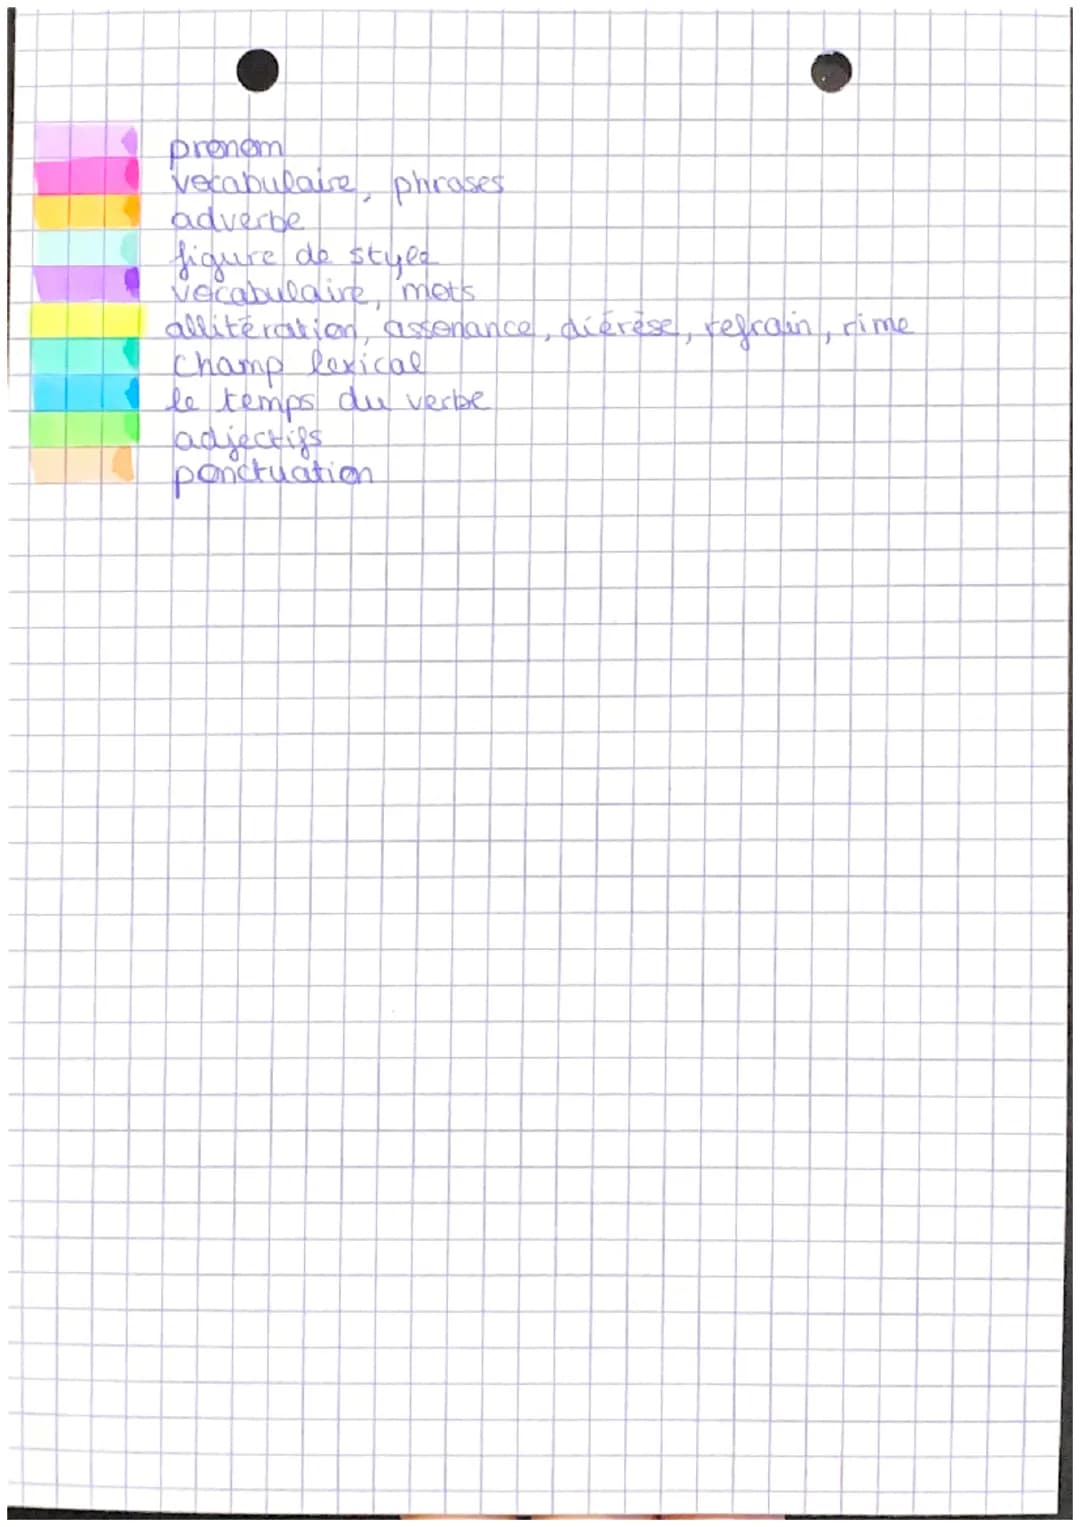 pronom
vocabulaire, phrases
adverbe
figure de style
vocabulaire, mots
allitération, assonance, diérèse, refrain, rime
champ lexical
le temps du verbe
adjectifs
ponctuation